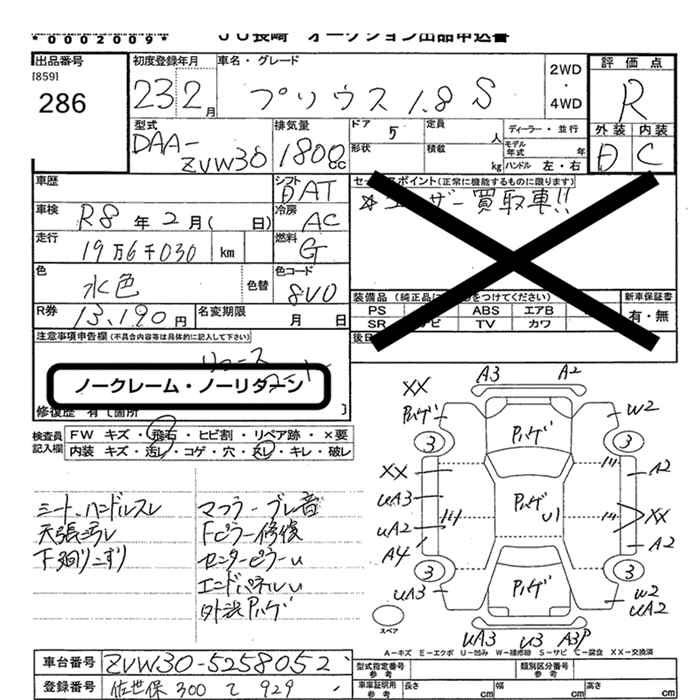 *0002009*
JU長崎 オークション出品申込書
出品番号 [859] 286
初度登録年月 23 2月
車名・グレード プリウス 1.8 S
2WD・4WD
評価点 R
外装 D 内装 C
型式 DAA-ZVW30
排気量 1800cc
ドア 5
形状
定員 人
積載 kg
ディーラー・並行
モデル年式 年
ハンドル 左・右
車歴
車検 R8年2月(日)
走行 19万6千030 km
色 水色 色替
R券 13,190円 名変期限 月 日
シフト DAT
冷房 AC
燃料 G
色コード 8V0
セールスポイント(正常に機能するものに限ります)
☆ユーザー買取車!!
装備品(純正品に をつけてください)
PS ABS エアB
SR ナビ TV カワ
新車保証書 有・無
後日
注意事項申告欄(不具合内容等は具体的に記入して下さい)
ノークレーム・ノーリターン
修復歴 有[箇所 ]
検査員記入欄
FW キズ・飛石・ヒビ割・リペア跡・×要
内装 キズ・汚レ・コゲ・穴・スレ・キレ・破レ
シート、ハンドルスレ
天張汚レ
下廻りこすり
マフラーブレ音
Fピラー修復
センターピラーU
エンドパネルU
外装Pハゲ
A3 A2
XX
Pハゲ Pハゲ W2
3 3
XX A2
UA3 Pハゲ U1 XX
UA2 A2
A4
3 3
UA3 Pハゲ W2 UA2
スペア
UA3 U3 A3P
A－キズ E－エクボ U－凹み W－補修跡 S－サビ C－腐食 XX－交換済
車台番号 ZVW30-5258052
登録番号 佐世保 300 て 929
型式指定番号 参考
類別区分番号 参考
車庫証明用 参考 長さ cm 幅 cm 高さ cm